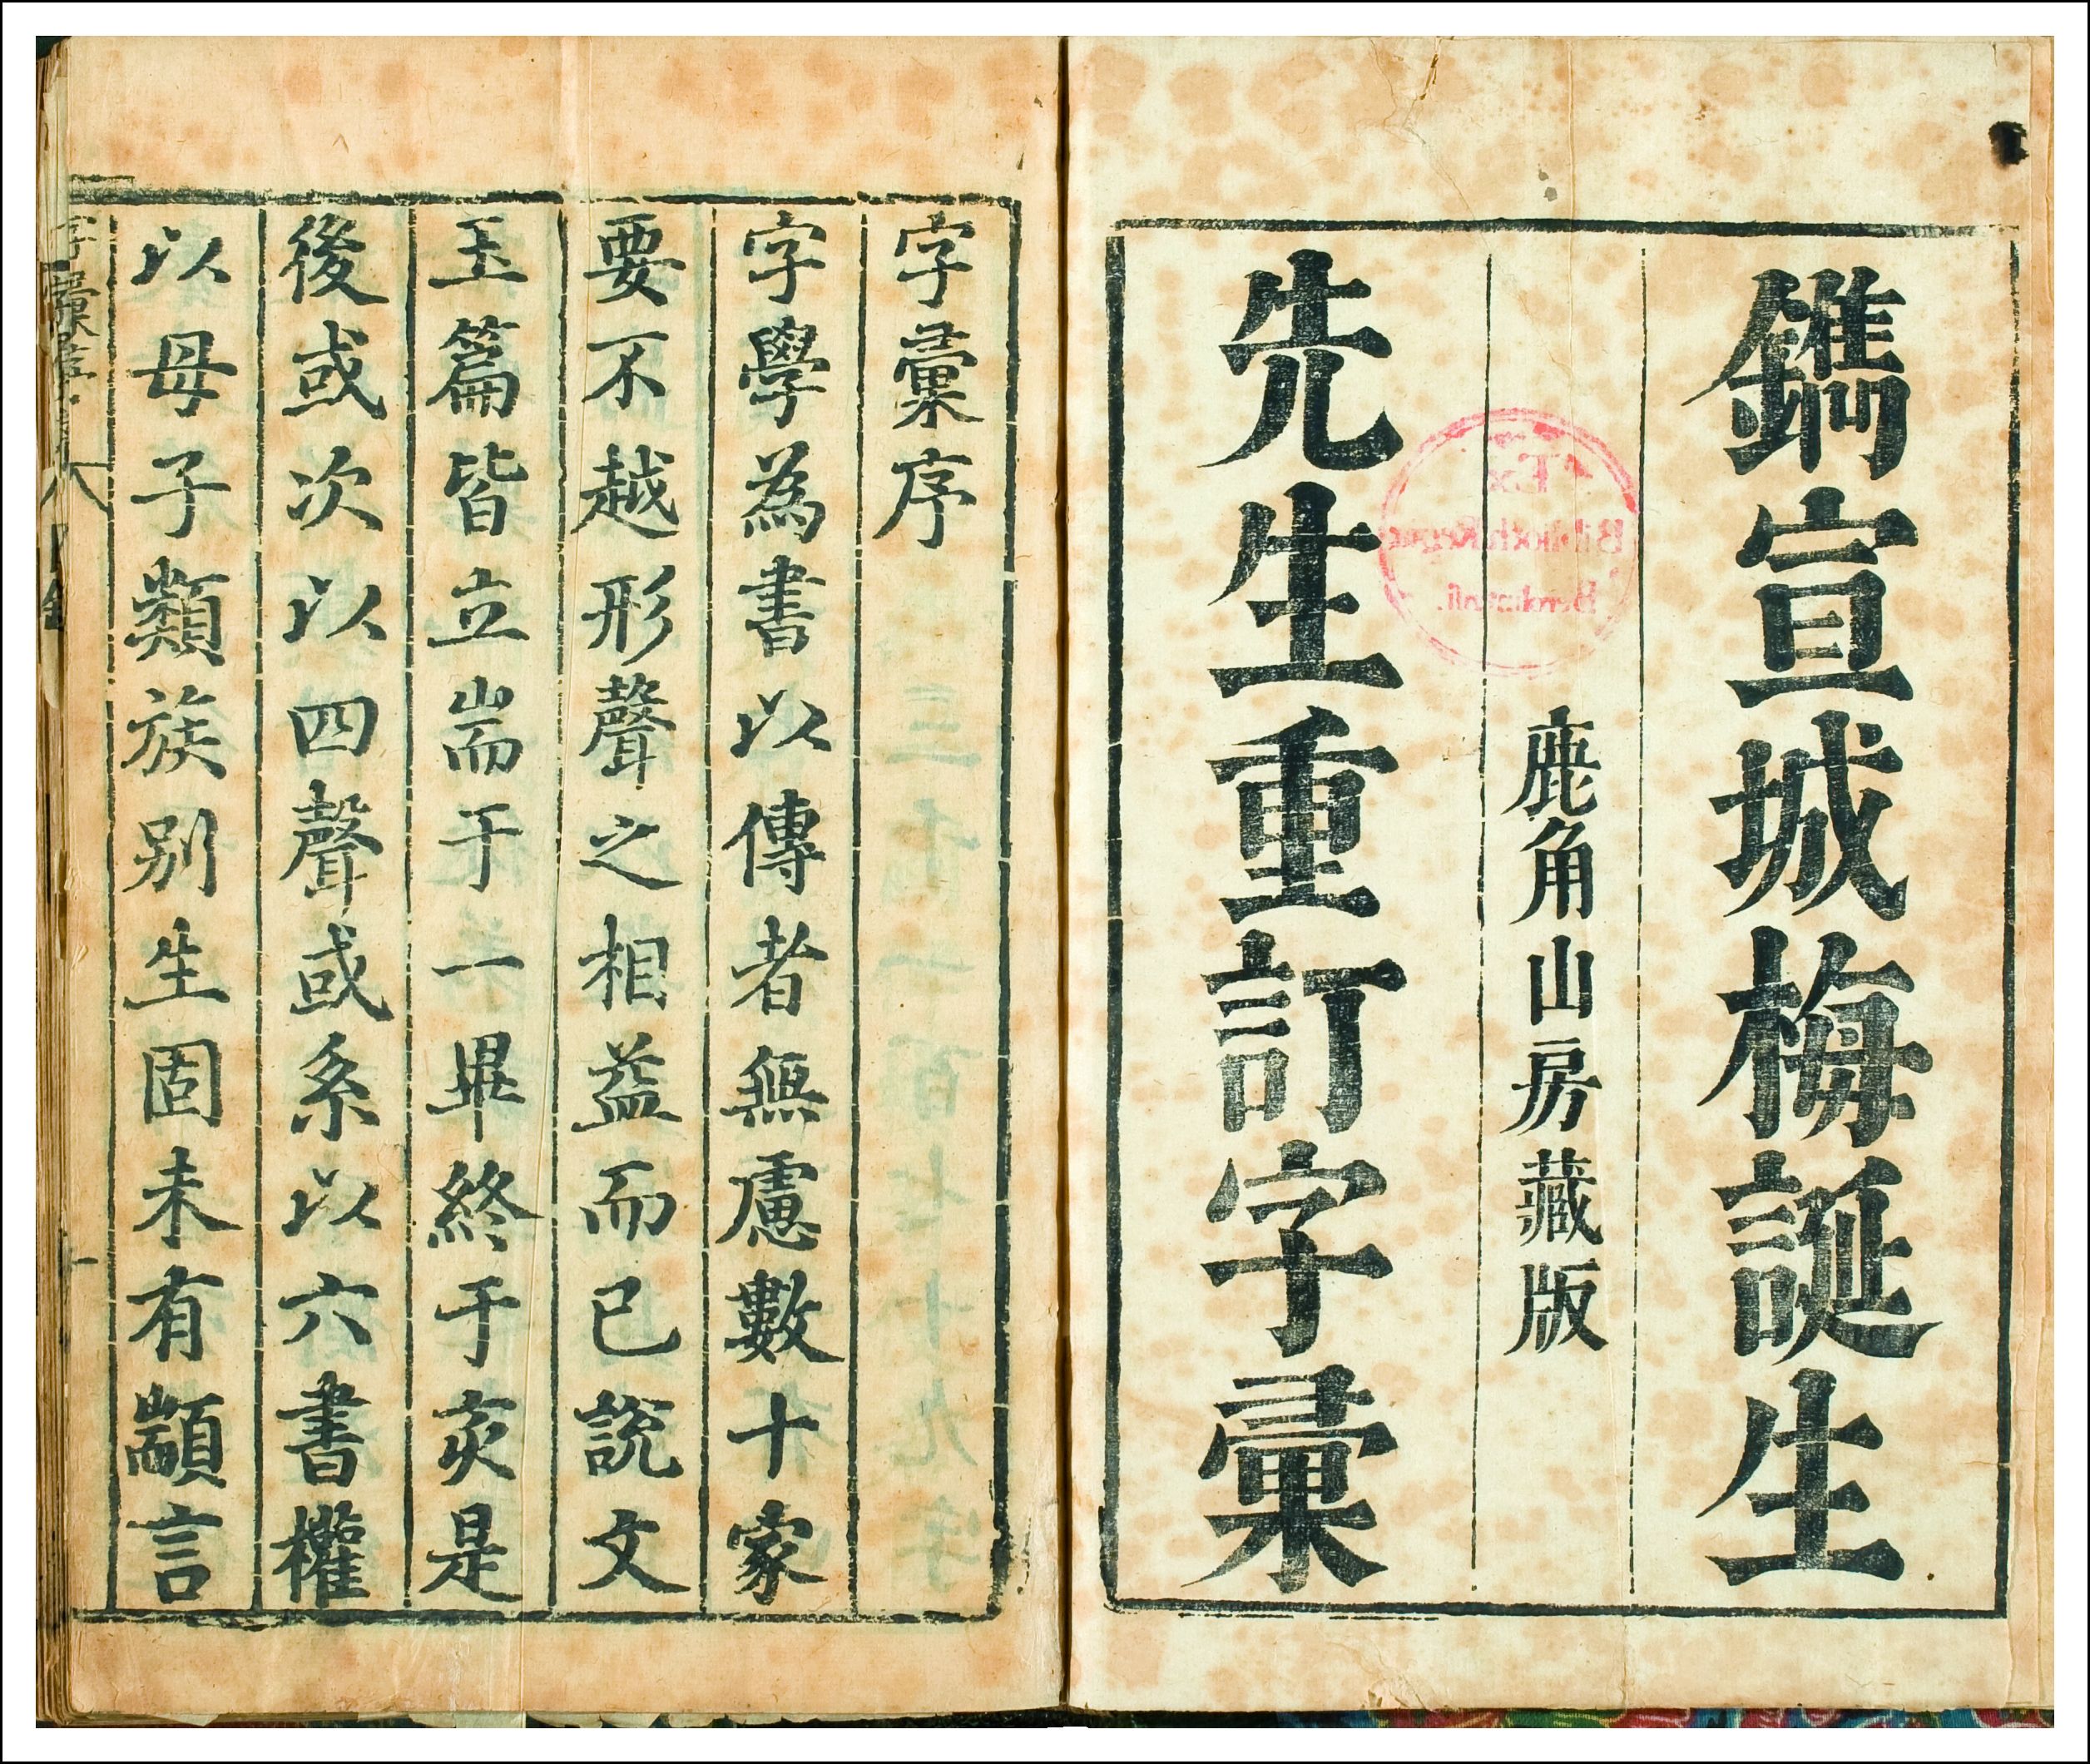 鐫宣城梅誕生
鹿角山房藏版
先生重訂字彙
Ex
Biblioth. Regia
Berolinensi.
字彙序
字學為書以傳者無慮數十家
要不越形聲之相益而已說文
玉篇皆立耑于一畢終于亥是
後或次以四聲或系以六書權
以母子類族別生固未有顓言